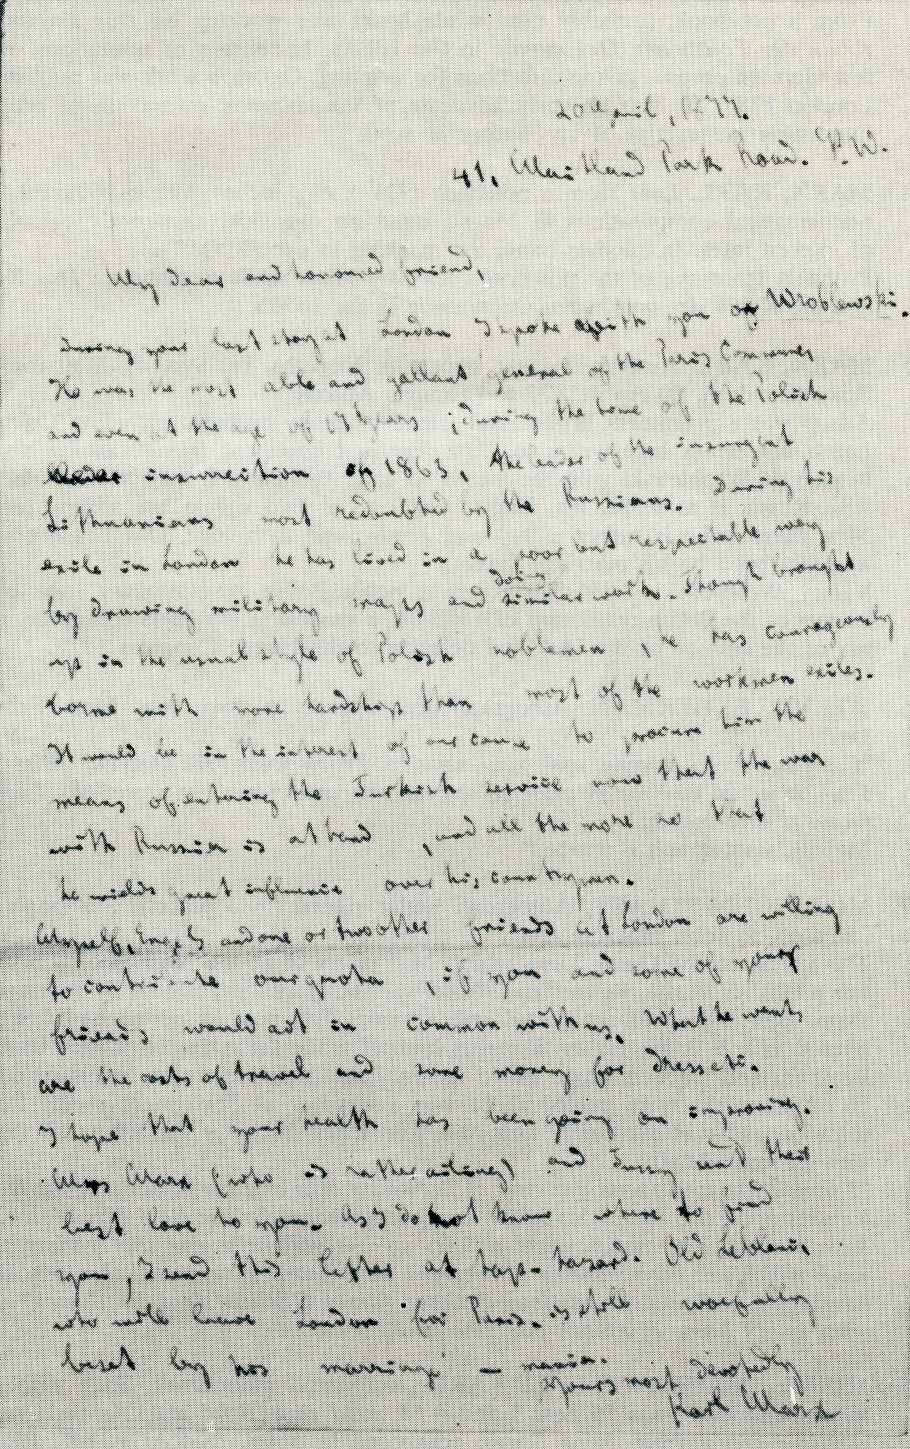 20 April, 1877.
41, Maitland Park Road. N.W.
My dear and honoured friend,
During your last stay at London I spoke with you of Wroblewski.
He was the most able and gallant general of the Paris Commune
and even at the age of years, during the time of the Polish
insurrection of 1863, the leader of the insurgent
Lithuanians most redoubted by the Russians. During his
exile in London he has lived in a poor but respectable way
by drawing military maps and doing similar work. Though brought
up in the usual style of Polish noblemen, he has courageously
borne with more hardships than most of the workmen exiles.
It would be in the interest of our cause to procure him the
means of entering the Turkish service now that the war
with Russia is at hand, and all the more so that
he wields great influence over his countrymen.
Myself, Engels and one or two other friends at London are willing
to contribute our quota, if you and some of your
friends would act in common with us. What he wants
are the costs of travel and some money for dress etc.
I hope that your health has been going on improving.
Mrs Marx (who is rather ailing) and Tussy send their
best love to you. As I do not know where to find
you, I send this letter at hap-hazard. Old Leblanc,
who will leave London for Paris. is still woefully
beset by his marriage - mania.
Yours most devotedly
Karl Marx